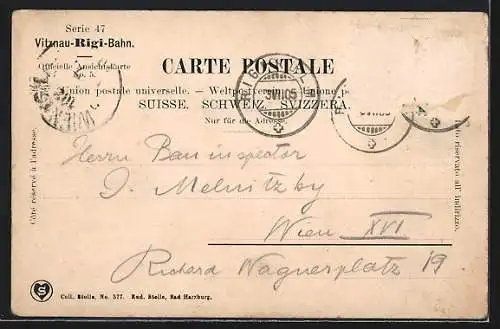 Serie 47
Vitznau-Rigi-Bahn.
Officielle Ansichtskarte
No. 5.
CARTE POSTALE
Union postale universelle. — Weltpostverein. — Unione p
SUISSE. SCHWEIZ. SVIZZERA.
Nur für die Adresse.
WIEN
RIGI
VII 05
VII 05
Côté réservé à l'adresse.
Lato riservato all' indirizzo.
Herrn Bauinspector
J. Melnitzky
Wien XVI
Richard Wagnerplatz 19
Coll. Stolle, No. 577. Rud. Stolle, Bad Harzburg.